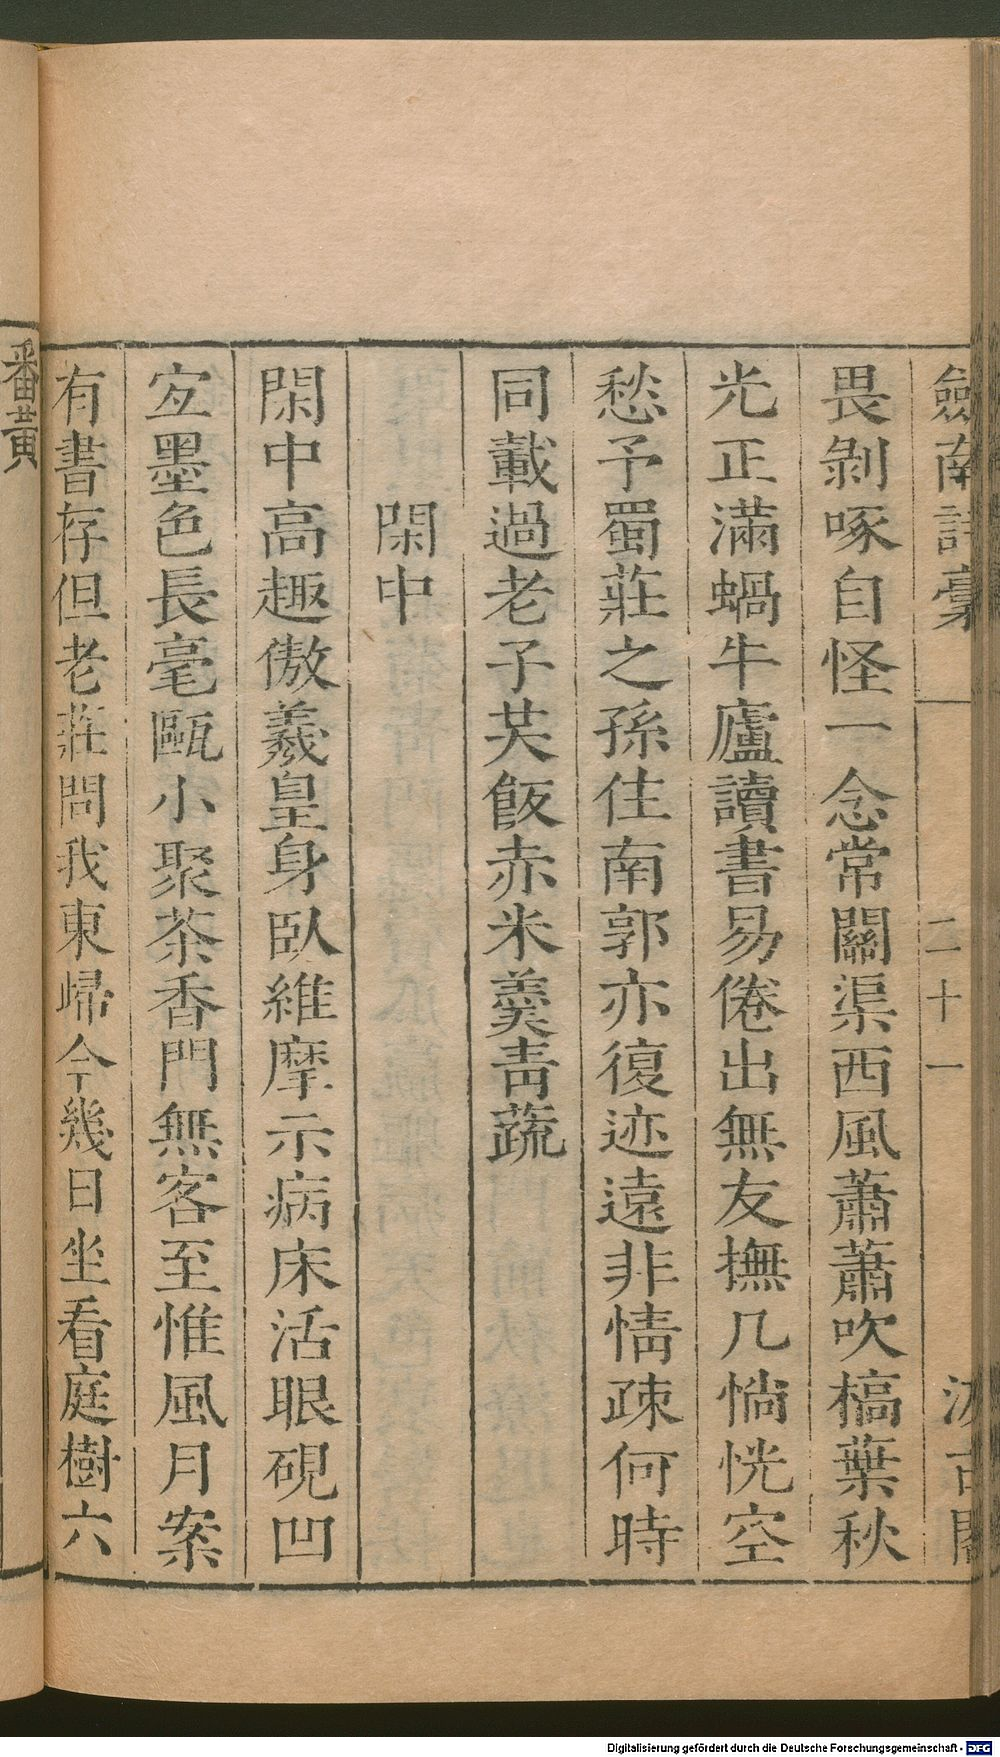 劔南詩稾 二十一 汲古閣
畏剝啄自怪一念常關渠西風蕭蕭吹槁葉秋
光正滿蝸牛廬讀書易倦出無友撫几惝恍空
愁予蜀莊之孫住南郭亦復迹遠非情疎何時
同載過老子芡飯赤米羹靑蔬
閑中
閑中高趣傲羲皇身臥維摩示病床活眼硯凹
宐墨色長毫甌小聚茶香門無客至惟風月案
有書存但老莊問我東歸今幾日坐看庭樹六
番黃
Digitalisierung gefördert durch die Deutsche Forschungsgemeinschaft - DFG